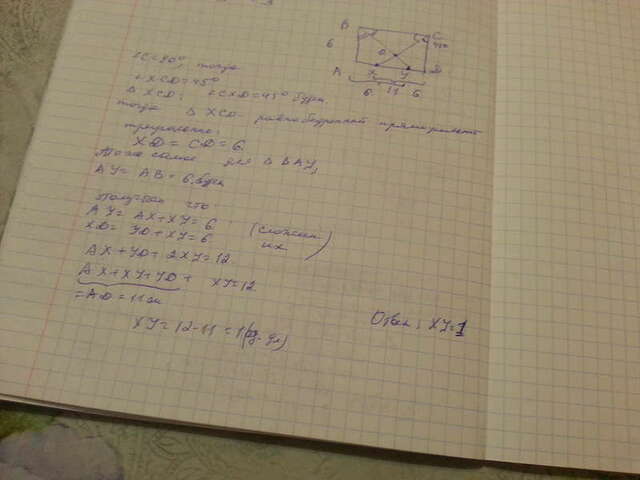 B C
6 O 45°
A X Y D
6 11 6
∠C = 90°, тогда
∠XCD = 45°
△ XCD: ∠CXD = 45° будет
тогда △ XCD - равнобедренный прямоугольн.
треугольник:
XD = CD = 6
Тоже самое для △ BAY,
AY = AB = 6.
Получаем что
AY = AX + XY = 6
XD = YD + XY = 6 (сложим их)
AX + YD + 2XY = 12
AX + XY + YD + XY = 12
= AD = 11
XY = 12 - 11 = 1
Ответ: XY = 1